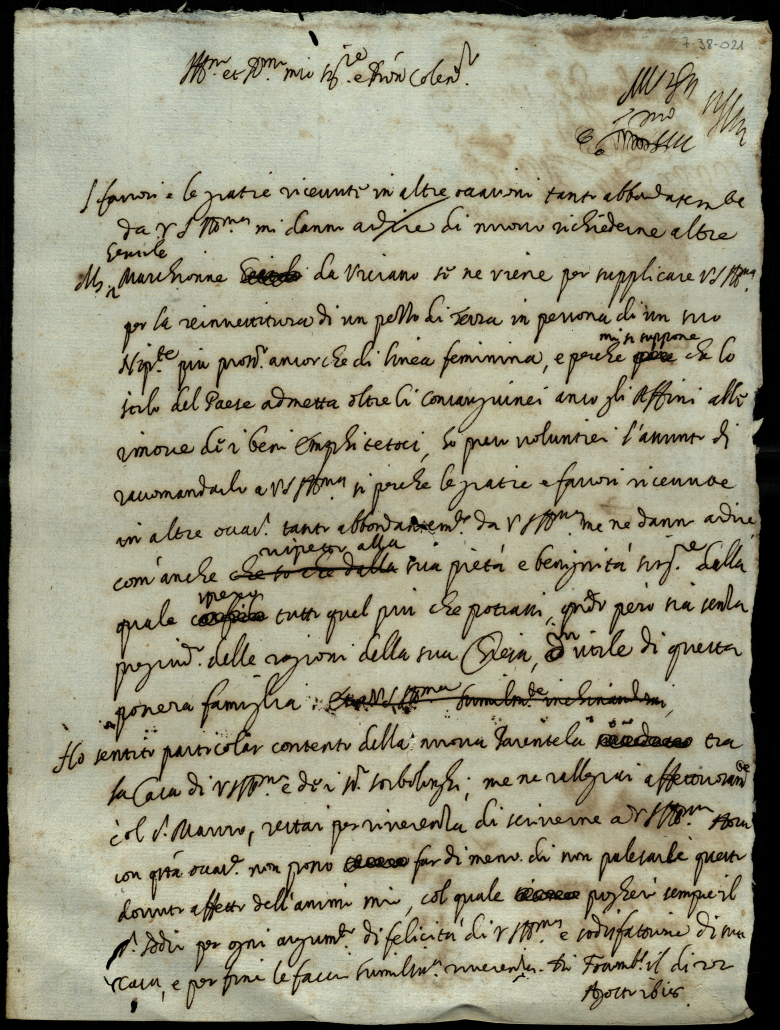 7-38-021
Ill.mo et R.mo mio Sig.re e P'ron Colen.mo
I favori e le gratie ricevute in altre occasioni tanto abbondatem.te
da V S Ill.ma mi danno ardire di nuovo richiederne altre
Gentile
Marchionne da Viciano se ne viene per supplicare V S Ill.ma
per la reinvestitura di un pezzo di Terra in persona di un suo
Nip.te più pross.o ancor che di linea feminina, e perche mi si suppone che lo
stilo del Paese admetta oltre li consanguinei anco gli Affini alle
rinove de i beni Emphiteotici, ho preso voluntieri l'assunto di
raccomandarlo a V S Ill.ma si perche le gratie e favori ricevute
in altre occas.i tanto abbondantem.te da V S Ill.ma me ne danno ardire
com'anche che so che dalla rispetto alla sua pietà e benignità della
quale spero tutto quel più che potrassi, però sia senza
pregiud.o delle ragioni della sua Chiesa, utile di questa
povera famiglia. humilm.te inchinandomi,
Ho sentito particolar contento della nuova Parentela tra
la Casa di V S Ill.ma e de i S.ri Sorbolonghi, me ne rallegrai affettuosam.te
col S.r Mauro, restai per riverenza di scriverne a V S Ill.ma hora
con q.ta occas.e non posso far di meno di non palesarle questo
dovuto affetto dell'animo mio, col quale pregherò sempre il
S.r Iddio per ogni augum.to di felicità di V S Ill.ma e sodisfatione di sua
Casa, e per fine le faccio humiliss.a riverenza. Di il di 22
Agosto 1618